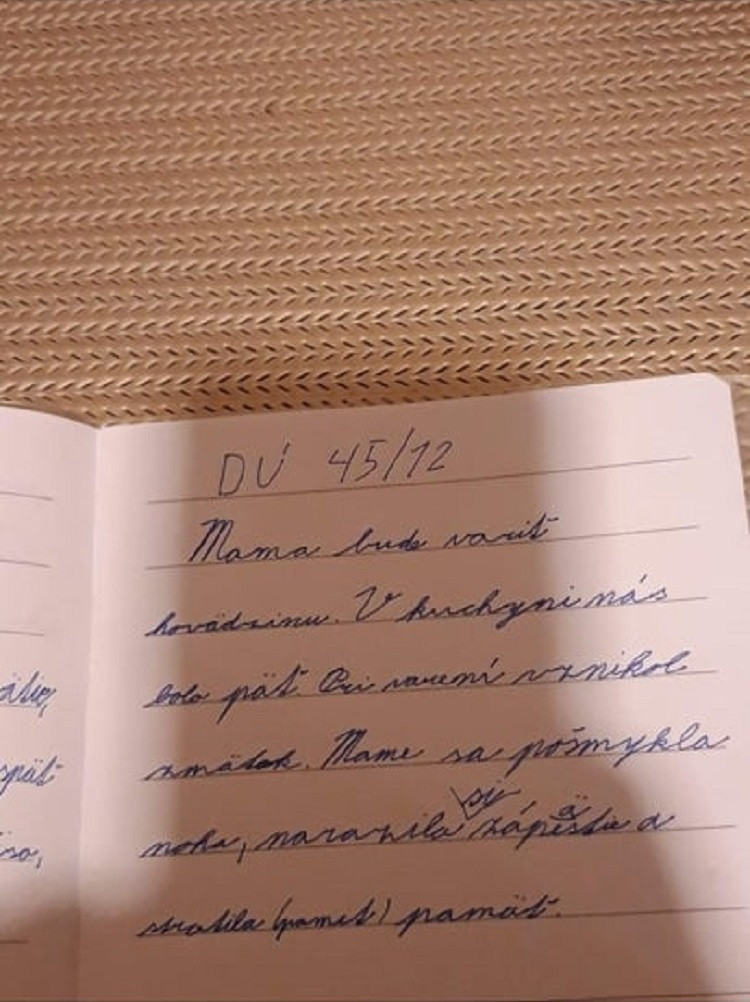 DÚ 45/12
Mama bude variť
hovädzinu. V kuchyni nás
bolo päť. Pri varení vznikol
zmätok. Mame sa pošmykla
noha, narazila si zápästie a
stratila (pamet) pamäť.
ätie,
späť